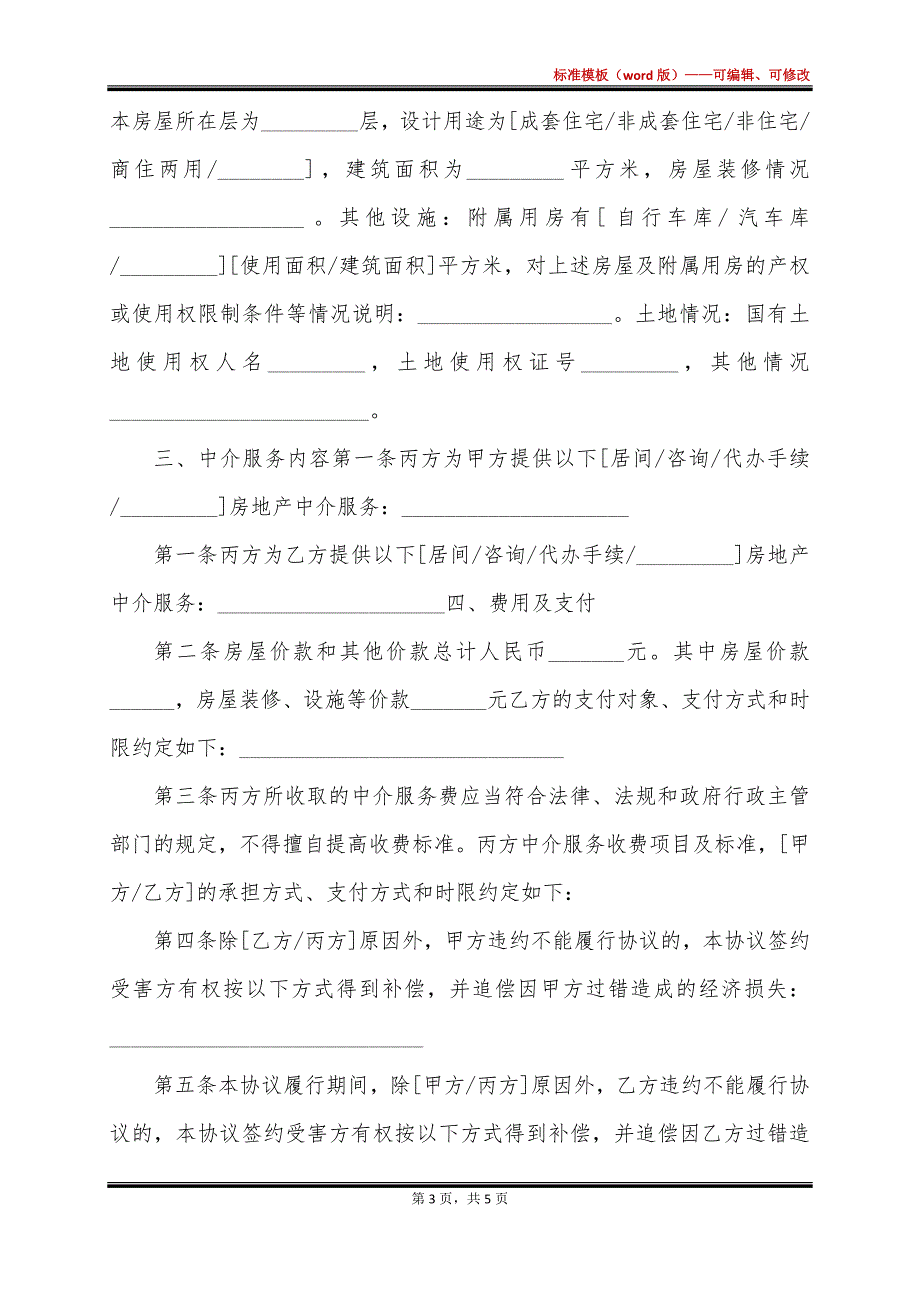 标准模板（word 版）——可编辑、可修改
本房屋所在层为_________层，设计用途为[成套住宅/非成套住宅/非住宅/
商住两用/________]，建筑面积为_________平方米，房屋装修情况
__________________。其他设施：附属用房有[自行车库/汽车库
/_________][使用面积/建筑面积]平方米，对上述房屋及附属用房的产权
或使用权限制条件等情况说明：__________________。土地情况：国有土
地使用权人名_________，土地使用权证号_________，其他情况
________________________。
三、中介服务内容第一条丙方为甲方提供以下[居间/咨询/代办手续
/_________]房地产中介服务：_____________________
第一条丙方为乙方提供以下[居间/咨询/代办手续/_________]房地产
中介服务：_____________________四、费用及支付
第二条房屋价款和其他价款总计人民币_______元。其中房屋价款
______，房屋装修、设施等价款_______元乙方的支付对象、支付方式和时
限约定如下：______________________________
第三条丙方所收取的中介服务费应当符合法律、法规和政府行政主管
部门的规定，不得擅自提高收费标准。丙方中介服务收费项目及标准，[甲
方/乙方]的承担方式、支付方式和时限约定如下：
第四条除[乙方/丙方]原因外，甲方违约不能履行协议的，本协议签约
受害方有权按以下方式得到补偿，并追偿因甲方过错造成的经济损失：
_____________________________
第五条本协议履行期间，除[甲方/丙方]原因外，乙方违约不能履行协
议的，本协议签约受害方有权按以下方式得到补偿，并追偿因乙方过错造
第 3 页，共 5 页